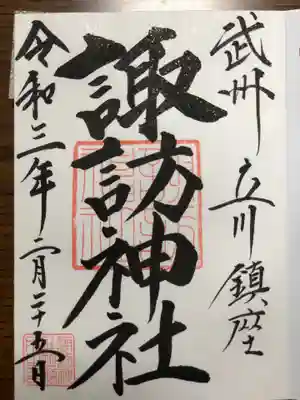 武州立川鎮座
諏訪神社
令和三年二月二十五日